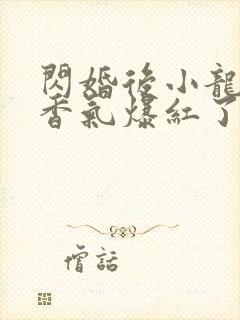 閃婚後小龍
香氣爆紅了
僧話